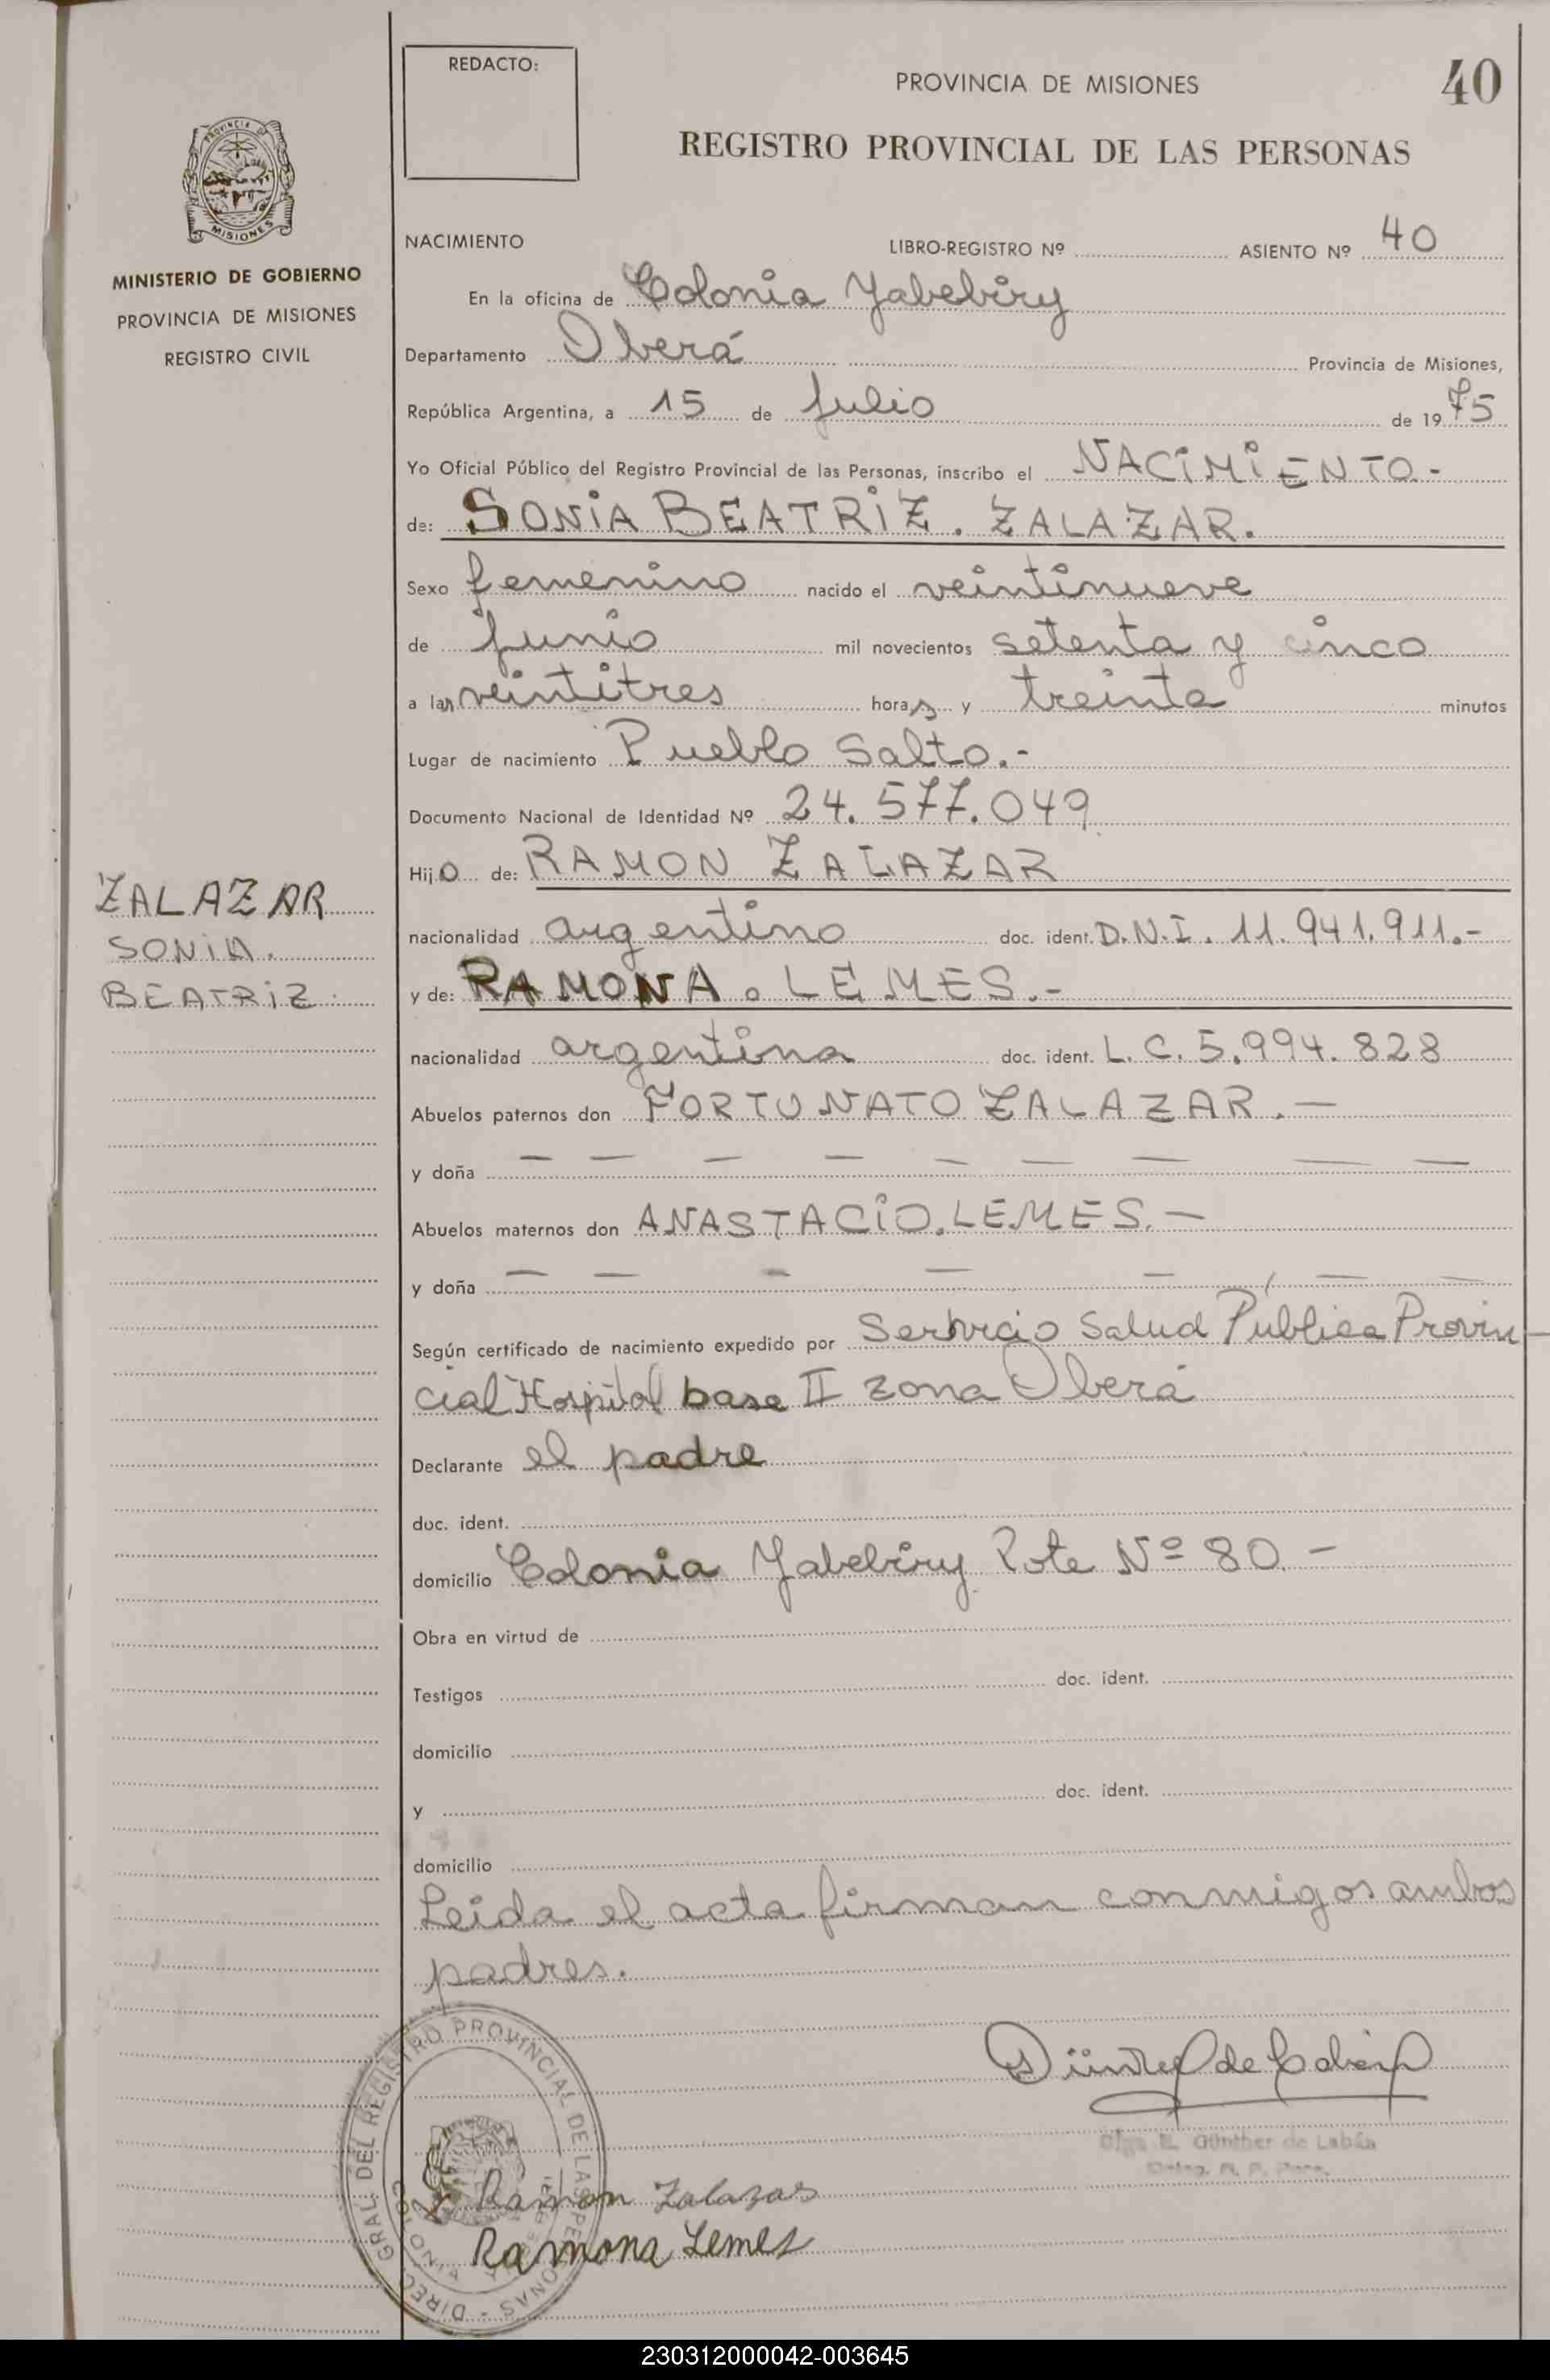 REDACTO:
PROVINCIA DE MISIONES
40
REGISTRO PROVINCIAL DE LAS PERSONAS
PROVINCIA D
MISIONES
MINISTERIO DE GOBIERNO
PROVINCIA DE MISIONES
REGISTRO CIVIL
NACIMIENTO LIBRO-REGISTRO Nº ASIENTO Nº 40
En la oficina de Colonia Yabebiry
Departamento Oberá Provincia de Misiones,
República Argentina, a 15 de Julio de 1975
Yo Oficial Público del Registro Provincial de las Personas, inscribo el NACIMIENTO.-
de: SONIA BEATRIZ. ZALAZAR.
Sexo femenino nacido el veintinueve
de junio mil novecientos setenta y cinco
a las veintitres horas y treinta minutos
Lugar de nacimiento Pueblo Salto.-
Documento Nacional de Identidad Nº 24.577.049
Hijo de: RAMON ZALAZAR
nacionalidad argentino doc. ident. D.N.I. 11.941.911.-
y de: RAMONA. LEMES.-
nacionalidad argentina doc. ident. L.C. 5.994.828
Abuelos paternos don FORTUNATO ZALAZAR.—
y doña — — — — — — — — —
Abuelos maternos don ANASTACIO. LEMES.—
y doña — — — — — — —
Según certificado de nacimiento expedido por Servicio Salud Pública Provin-
cial Hospital base II zona Oberá
Declarante el padre
doc. ident.
domicilio Colonia Yabebiry Lote Nº 80.-
Obra en virtud de
Testigos doc. ident.
domicilio
y doc. ident.
domicilio
Leida el acta firman conmigos ambos
padres.
ZALAZAR
SONIA.
BEATRIZ
DIREC. GRAL. DEL REGISTRO PROVINCIAL DE LAS PERSONAS -
COLONIA
Günther de Labán
Olga E. Günther de Labán
Ramon Zalazar
Ramona Lemes
230312000042-003645